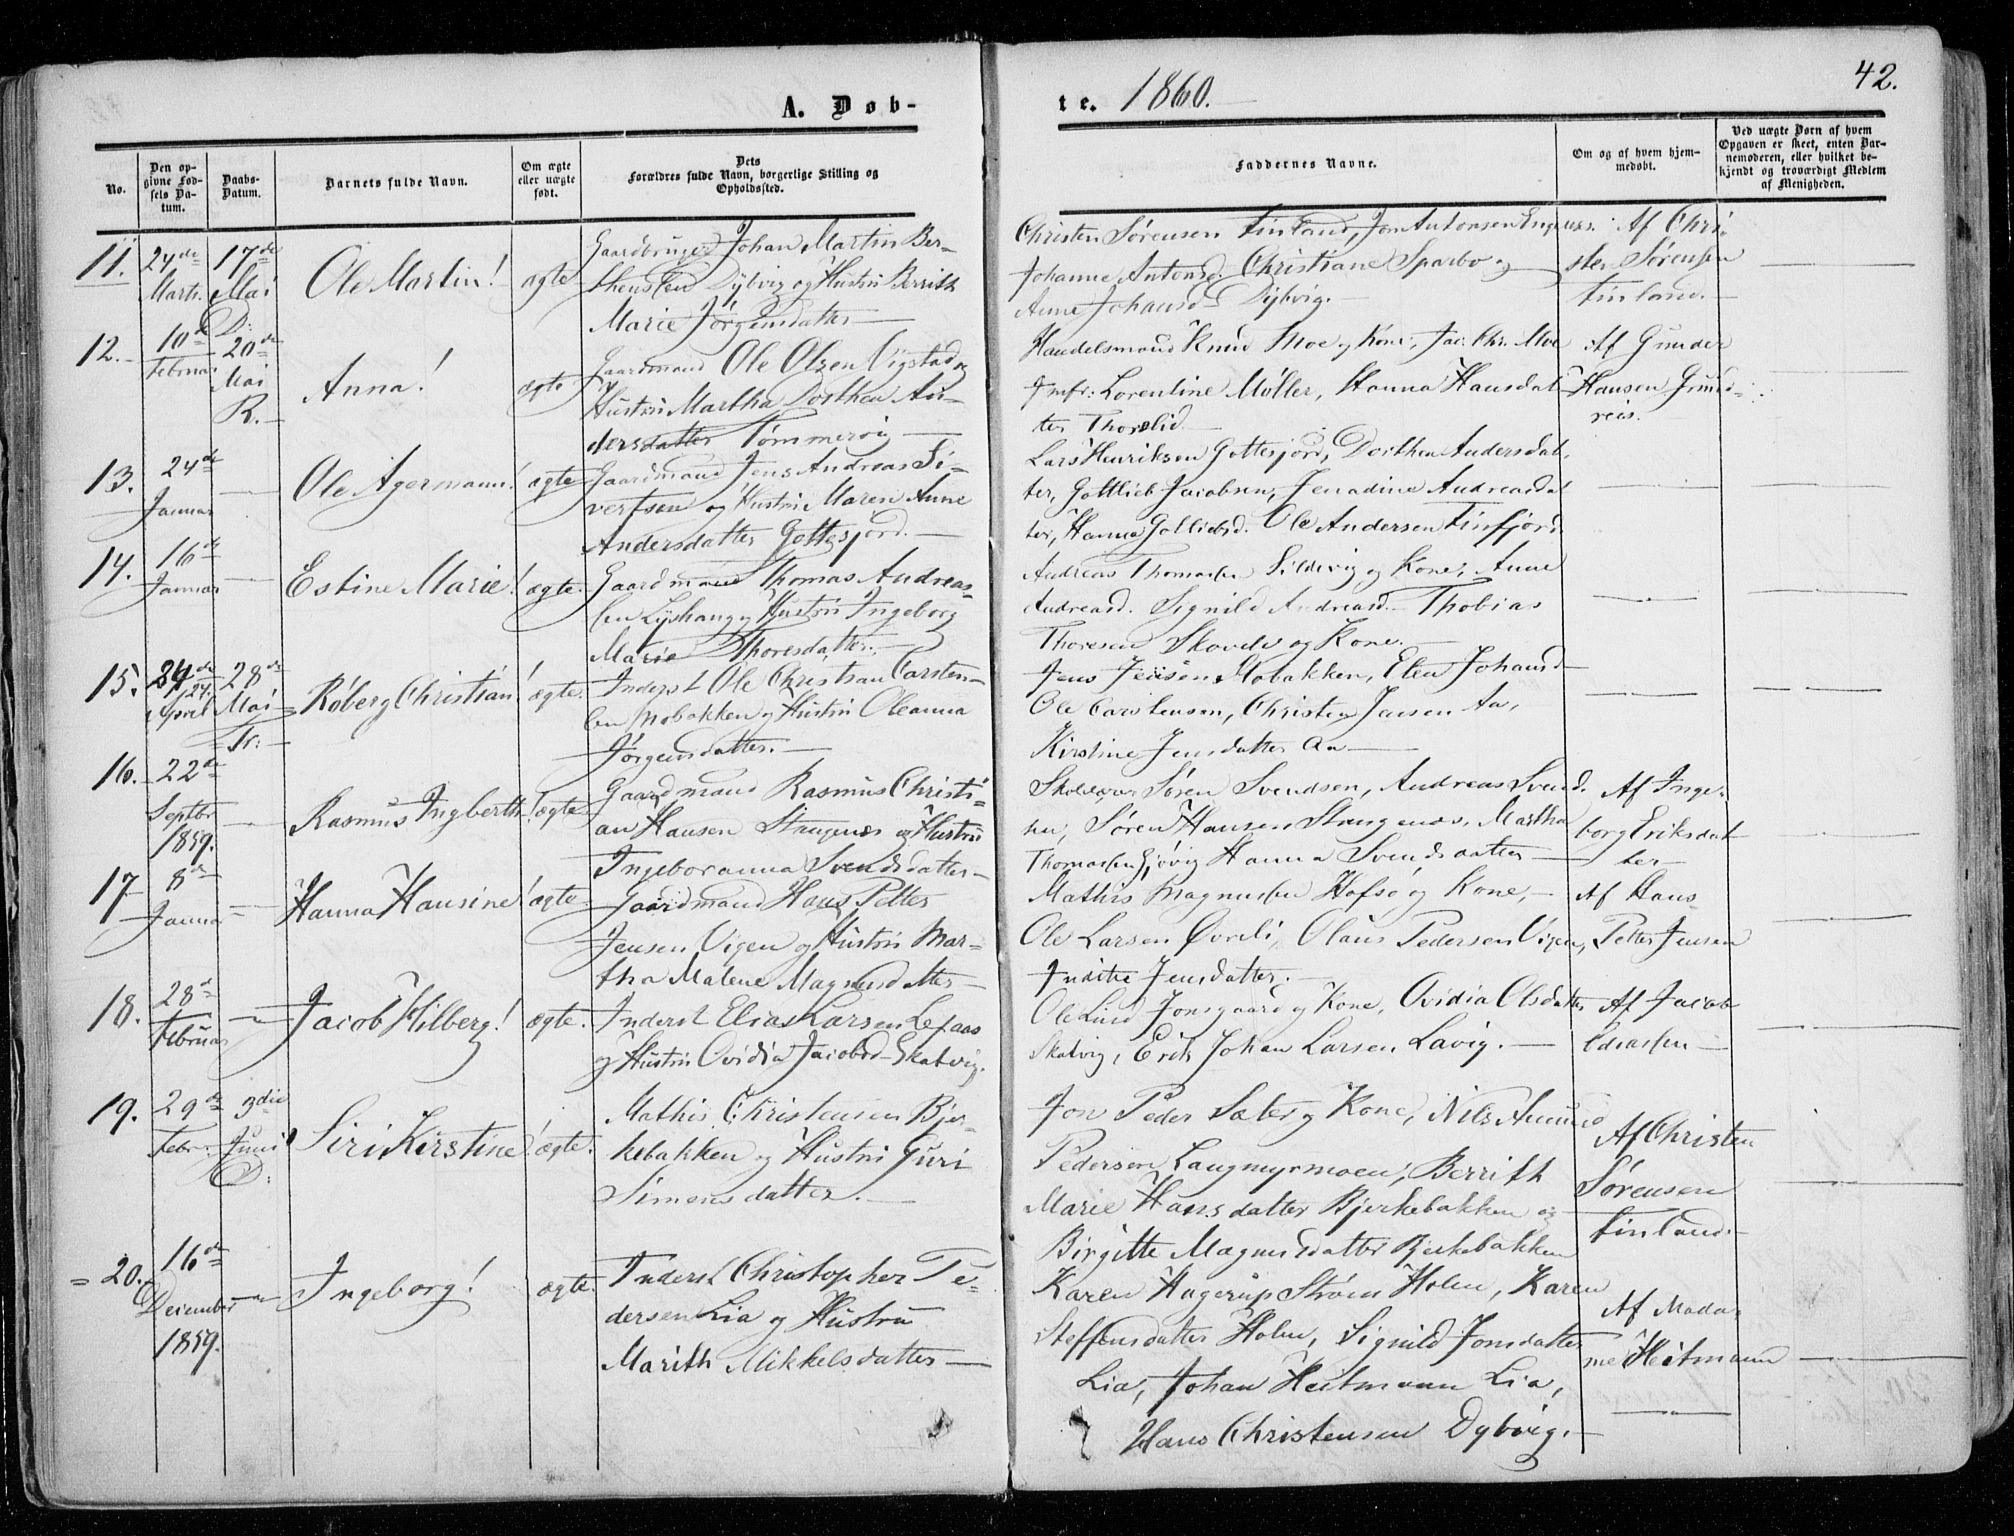 42.
A. Døb-
te. 1860.
No.
Den op-
givne Fød-
sels Da-
tum.
Daabs-
Datum.
Barnets fulde Navn.
Om ægte
eller uægte
født.
Dets
Forældres fulde Navn, borgerlige Stilling og
Opholdssted.
Faddernes Navne.
Om og af hvem hjem-
medøbt.
Ved uægte Børn af hvem
Opgaven er skeet, enten Bar-
nemoderen, eller hvilket be-
kjendt og troværdigt Medlem
af Menigheden.
11.
24de
Marts.
17de
Mai
D:
Ole Martin!
ægte
Gaardbruger Johan Martin Ber-
thensen Dybvig og Hustru Berrith
Marie Jørgensdatter
Christen Sørensen Finland, Jon Antonsen
Johanne Antonsd. Christiane Sparbo og
Anne Johansd Dybvig.
Af Chri-
sten Sørensen
Finland.
12.
10de
Februar
20de
Mai
R.
Anna!
ægte
Gaardmand Ole Olsen Vigstad og
Hustru Martha Dorthea An-
dersdatter Tømmervig
Handelsmand Knud Moe og Kone, Jac. Chr. Moe
Jmfr: Lorentine Møller, Hanna Hansdat-
ter Thorelid
Af Gunder
Hansen Grund-
reis.
13.
24de
Januar
Ole Agermann!
ægte
Gaardmand Jens Andreas Si-
vertsen og Hustru Maren Anne
Andersdatter Gottesjord.
Lars Henriksen Gottesjord, Dorthea Andersdat-
ter, Gottlieb Jacobsen, Jenadine Andreasdat
ter, Hanna Gottliebsd. Ole Andersen Finfjord
14.
16de
Januar
Estine Marie!
ægte.
Gaardmand Thomas Andreas-
sen Lyshaug og Hustru Ingeborg
Marie Thoresdatter.
Andreas Thomassen Sildvig og Kone, Anne
Andreasd. Signild Andreasd. Thobias
Thoresen Skarde og Kone.
15.
24de
27.
April
28de
Mai
Tr:
Røberg Christian!
ægte.
Inderst Ole Christian Carsten-
sen Mobakken og Hustru Oleanna
Jørgensdatter.
Jens Jensen Mobakken, Elen Johansd
Ole Carstensen, Christen Jensen Aa,
Kirstine Jensdatter Aa
16.
22de
Septbr
1859.
Rasmus Ingberth!
ægte
Gaardmand Rasmus Christi-
an Hansen Stangenæs og Hustru
Ingeboranna Svendsdatter
Søren Svendsen, Andreas Svend-
sen, Søren Hansen Stangenæs, Martha
Thomassen Gjøvig Hanna Svendsdatter
Af Inge-
borg Eriksdat
ter
17
8de
Januar
Hanna Hansine!
ægte
Gaardmand Hans Petter
Jensen Vigen og Hustru Mar-
tha Malene Magnusdatter
Mathis Magnussen Hofsø og Kone,
Ole Larsen Øvreli, Olaus Pedersen Vigen,
Judithe Jensdatter.
Af Hans
Petter Jensen
18.
28de
Februar
Jacob Hilberg!
ægte.
Inderst Elias Larsen Lefaas
og Hustru Ovidia Jacobsd Skatvig.
Ole Lund Jonsgaard og Kone, Ovidia Olsdatter
Skatvig, Erik Johan Larsen Lavig.
Af Jacob
Eliassen
19.
29de
Febr.
3die
Juni
D:
Siri Kirstine!
ægte.
Mathis Christensen Bjer-
kebakken og Hustru Guri
Simonsdatter.
Jon Peder Sæter og Kone, Nils Amund
Pedersen Langmyrmoen, Berrith
Marie Hansdatter Bjerkebakken og
Birgitte Magnusdatter Bjerkebakken
Af Christen
Sørensen
Finland
20.
16de
December
1859.
Ingeborg!
ægte.
Inderst Christopher Pe-
dersen Lia og Hustru
Marith Mikkelsdatter
Karen Hagerup Strøm Holm, Karen
Steffensdatter Holm, Signild Jonsdatter
Lia, Johan Heitmann Lia,
Hans Christensen Dybvig.
Af Mada-
me Heitmann